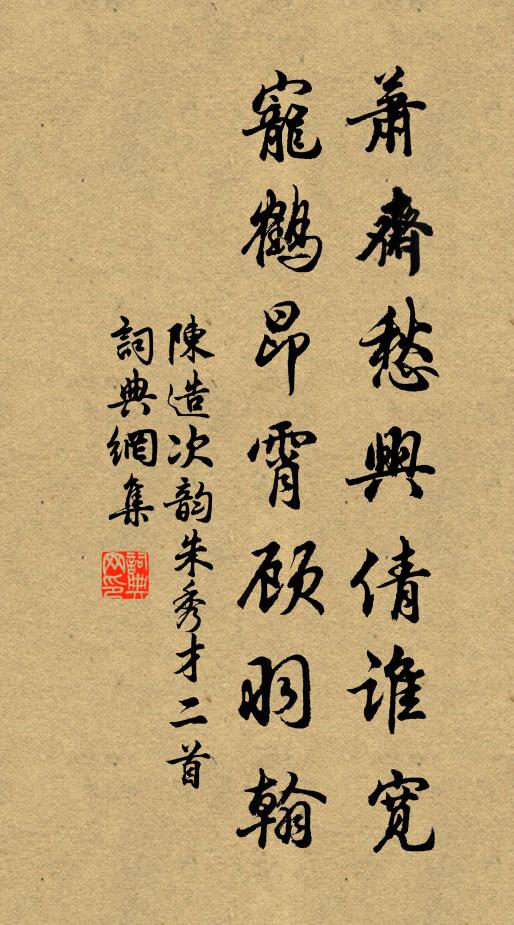 蕭齋愁興倩誰寬
寵鶴昂霄顧羽翰
陳造次韵朱秀才二首
詞典網集
詞典网印